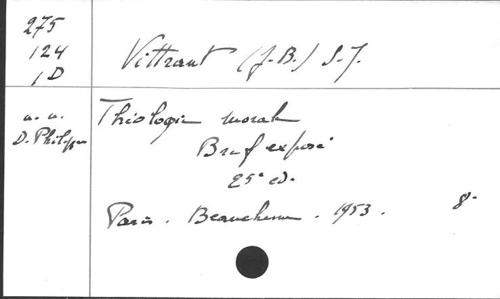 275
124
1D
Vittrant (J.-B.) S.J.
a. u.
D. Philippe
Théologie morale
Bref exposé
25e ed.
Paris. Beauchesne. 1953. 8°